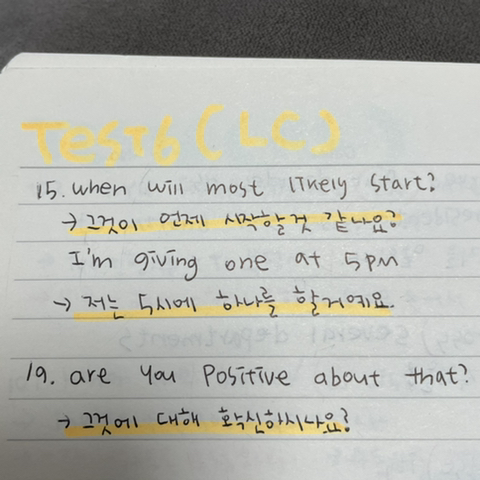 Test6 (LC)
15. when will most likely start?
→ 그것이 언제 시작할것 같나요?
I'm giving one at 5pm
→ 저는 5시에 하나를 할거예요.
19. are you positive about that?
→ 그것에 대해 확신하시나요?
several departments